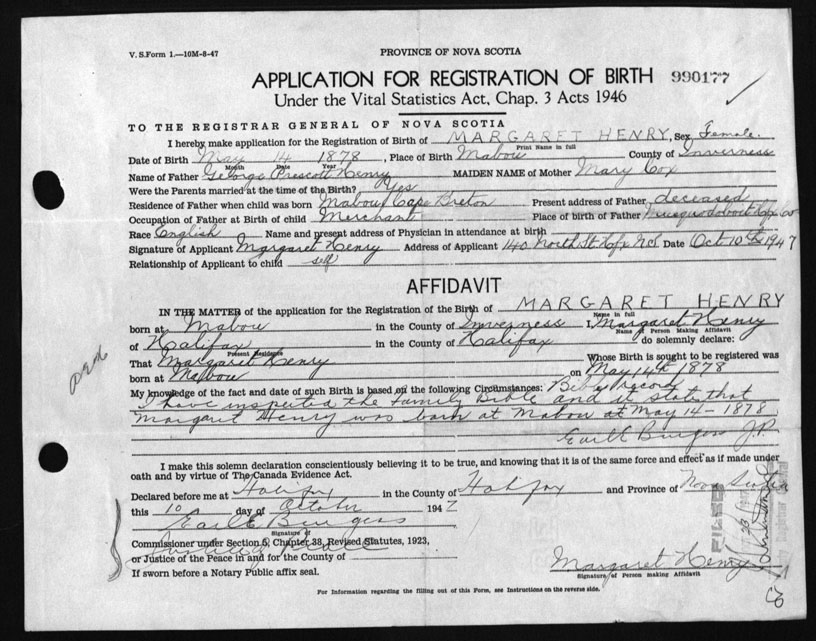 V. S. Form 1.—10M-8-47
PROVINCE OF NOVA SCOTIA
APPLICATION FOR REGISTRATION OF BIRTH 990177
Under the Vital Statistics Act, Chap. 3 Acts 1946
TO THE REGISTRAR GENERAL OF NOVA SCOTIA
I hereby make application for the Registration of Birth of MARGARET HENRY, Sex Female.
Print Name in full
Date of Birth May 14 1878, Place of Birth Mabou County of Inverness
Month Date Year
Name of Father George Prescott Henry MAIDEN NAME of Mother Mary Cox
Were the Parents married at the time of the Birth? Yes
Residence of Father when child was born Mabou Cape Breton Present address of Father deceased
Occupation of Father at Birth of child Merchant Place of birth of Father Musquodoboit Hfx Co
Race English Name and present address of Physician in attendance at birth
Signature of Applicant Margaret Henry Address of Applicant 140 North St Hfx N.S. Date Oct 10th 1947
Relationship of Applicant to child self
AFFIDAVIT
IN THE MATTER of the application for the Registration of the Birth of MARGARET HENRY
Name in full
born at Mabou in the County of Inverness I, Margaret Henry
Name of Person Making Affidavit
of Halifax in the County of Halifax do solemnly declare:
Present Residence
That Margaret Henry Whose Birth is sought to be registered was
born at Mabou on May 14th 1878
My knowledge of the fact and date of such Birth is based on the following Circumstances: Bible record
I have inspected the Family Bible and it states that
Margaret Henry was born at Mabou at May 14 - 1878
Earl E Burgess J.P.
I make this solemn declaration conscientiously believing it to be true, and knowing that it is of the same force and effect as if made under
oath and by virtue of The Canada Evidence Act.
Declared before me at Halifax in the County of Halifax and Province of Nova Scotia
this 10 day of October 1947
Earl E Burgess
Signature of
Commissioner under Section 5, Chapter 38, Revised Statutes, 1923,
Justice of Peace
or Justice of the Peace in and for the County of
If sworn before a Notary Public affix seal.
Margaret Henry
Signature of Person making Affidavit
For Information regarding the filling out of this Form, see Instructions on the reverse side.
FILED